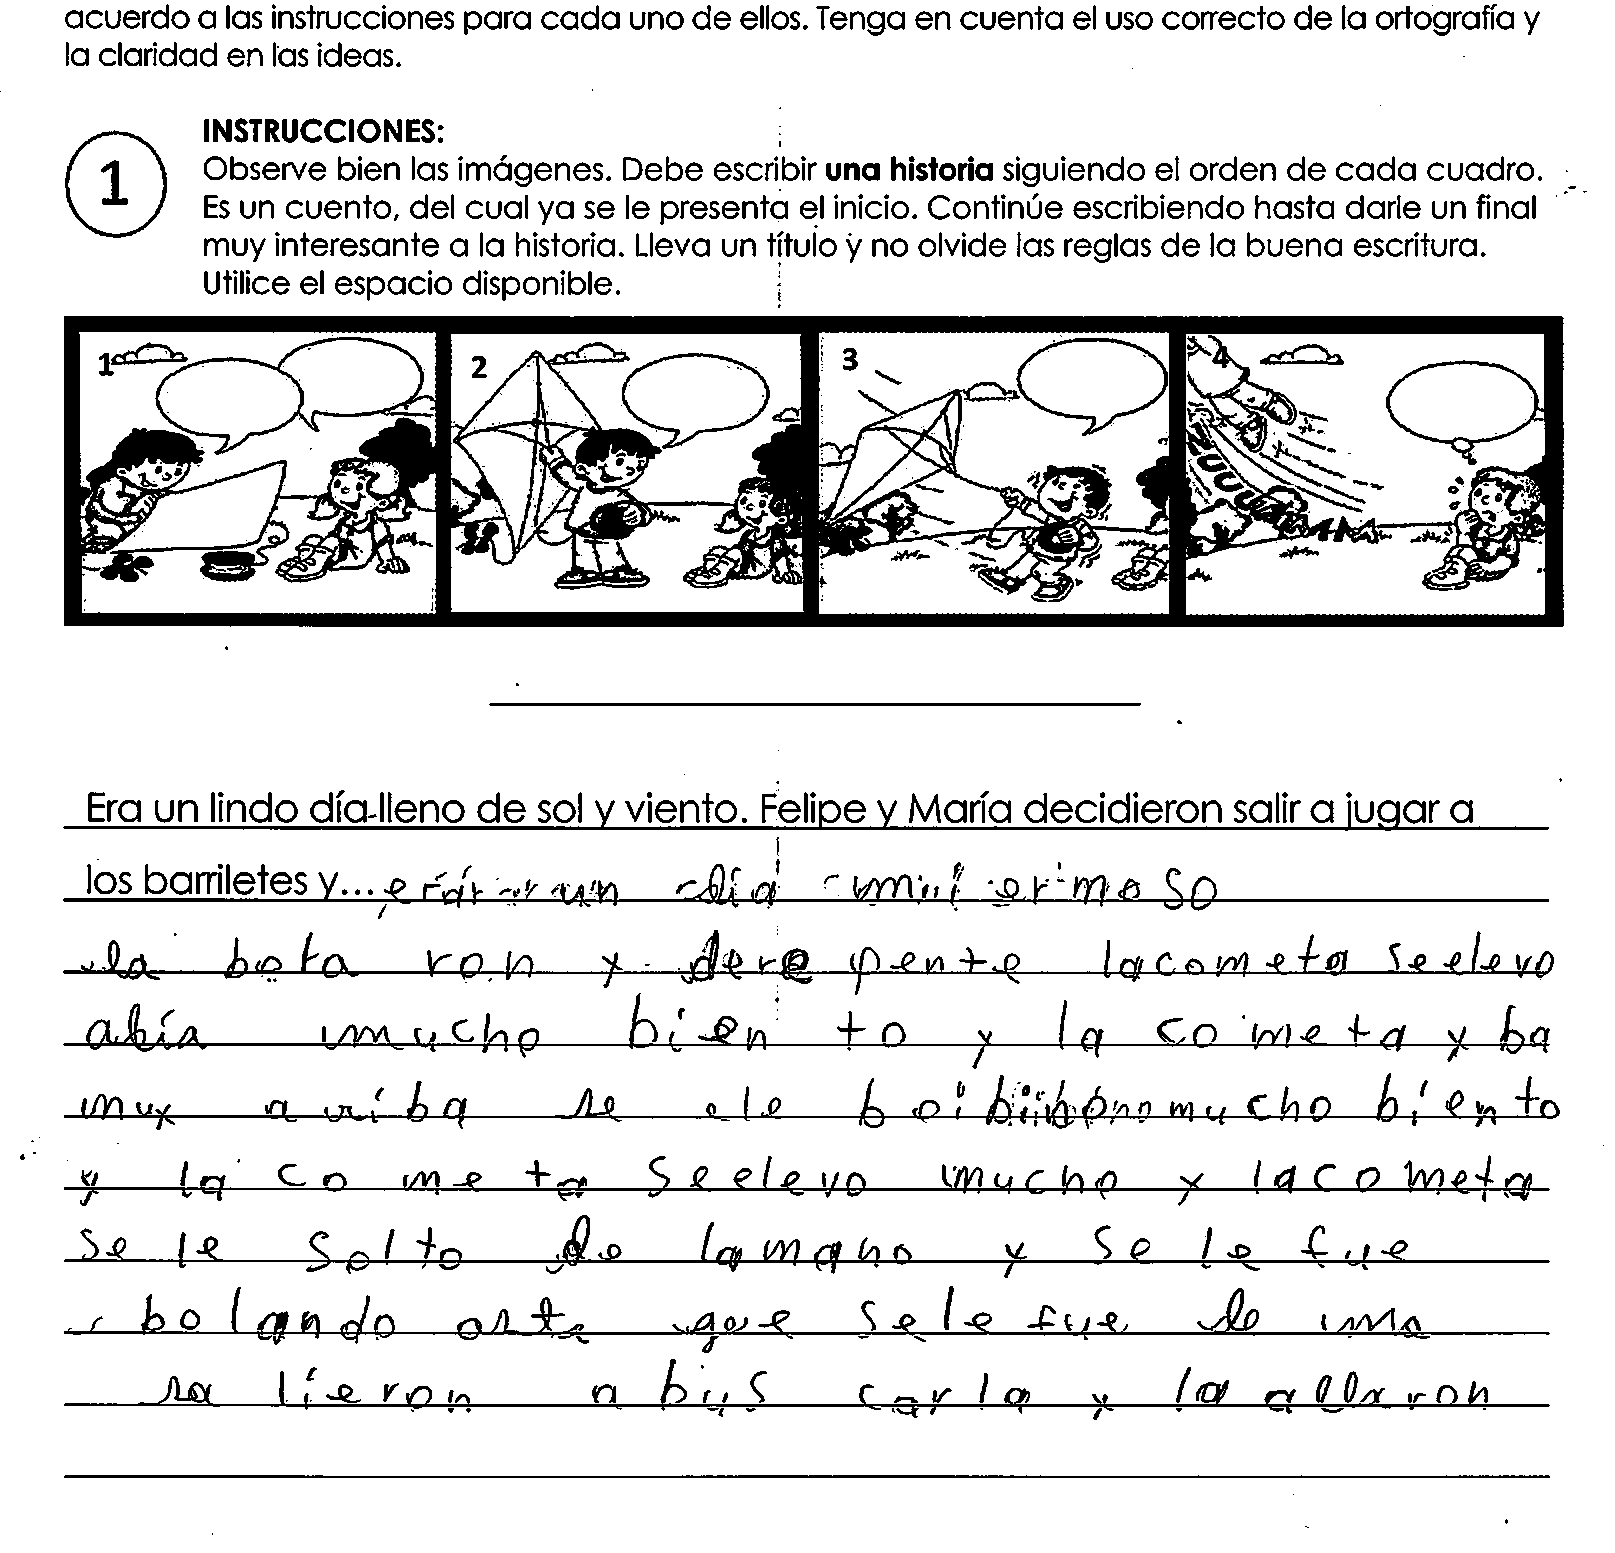 acuerdo a las instrucciones para cada uno de ellos. Tenga en cuenta el uso correcto de la ortografía y
la claridad en las ideas.
1
INSTRUCCIONES:
Observe bien las imágenes. Debe escribir una historia siguiendo el orden de cada cuadro.
Es un cuento, del cual ya se le presenta el inicio. Continúe escribiendo hasta darle un final
muy interesante a la historia. Lleva un título y no olvide las reglas de la buena escritura.
Utilice el espacio disponible.
1 2 3 4
Era un lindo día lleno de sol y viento. Felipe y María decidieron salir a jugar a
los barriletes y... un día mui ermoso
la bota ron y dere pente lacometa seelevo
abía mucho bien to y la co meta y ba
muy arriba se ele mucho biento
y la co me ta seelevo mucho y lacometa
se le solto de lamano y se le fue
bolando asta que sele fue de
sa lieron a bus carla y la allaron